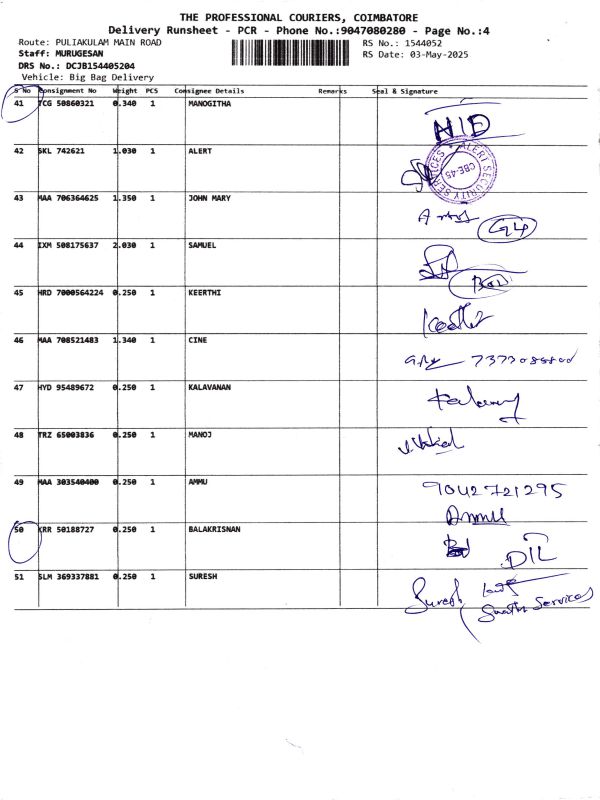 THE PROFESSIONAL COURIERS, COIMBATORE
Delivery Runsheet - PCR - Phone No.:9047080280 - Page No.:4
Route: PULIAKULAM MAIN ROAD RS No.: 1544052
Staff: MURUGESAN RS Date: 03-May-2025
DRS No.: DCJB154405204
Vehicle: Big Bag Delivery
S No Consignment No Weight PCS Consignee Details Remarks Seal & Signature
41 TCG 50860321 0.340 1 MANOGITHA
NID
42 SKL 742621 1.030 1 ALERT
ALERT SECURITY SERVICES CBE-45
43 MAA 706364625 1.350 1 JOHN MARY
44 IXM 508175637 2.030 1 SAMUEL
45 HRD 7000564224 0.250 1 KEERTHI
Keerthi
46 MAA 708521483 1.340 1 CINE
47 HYD 95489672 0.250 1 KALAVANAN
48 TRZ 65003836 0.250 1 MANOJ
49 MAA 303540400 0.250 1 AMMU
9042721295
Ammu
50 KRR 50188727 0.250 1 BALAKRISNAN
DIL
51 SLM 369337881 0.250 1 SURESH
Suresh
Services